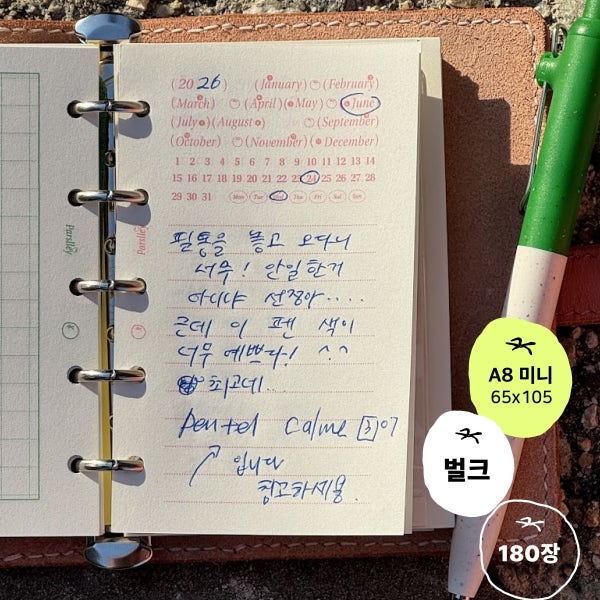 (2026) (January) (February)
(March) (April) May) (June)
(July (August (September)
(October) (November) December)
1 2 3 4 5 6 7 8 9 10 11 12 13 14
15 16 17 18 19 20 21 22 23 24 25 26 27 28
29 30 31 Mon Tue Wed Thu Fri Sat Sun
필통을 놓고 오다니
너무! 안일한거
아니냐 선정아....
근데 이 펜 색이
너무 예쁘다! ^.^
최고네...
Pentel Calme [3]이
입니다
참고하세용.
Parsley
Parsley
A8 미니
65x105
벌크
180장